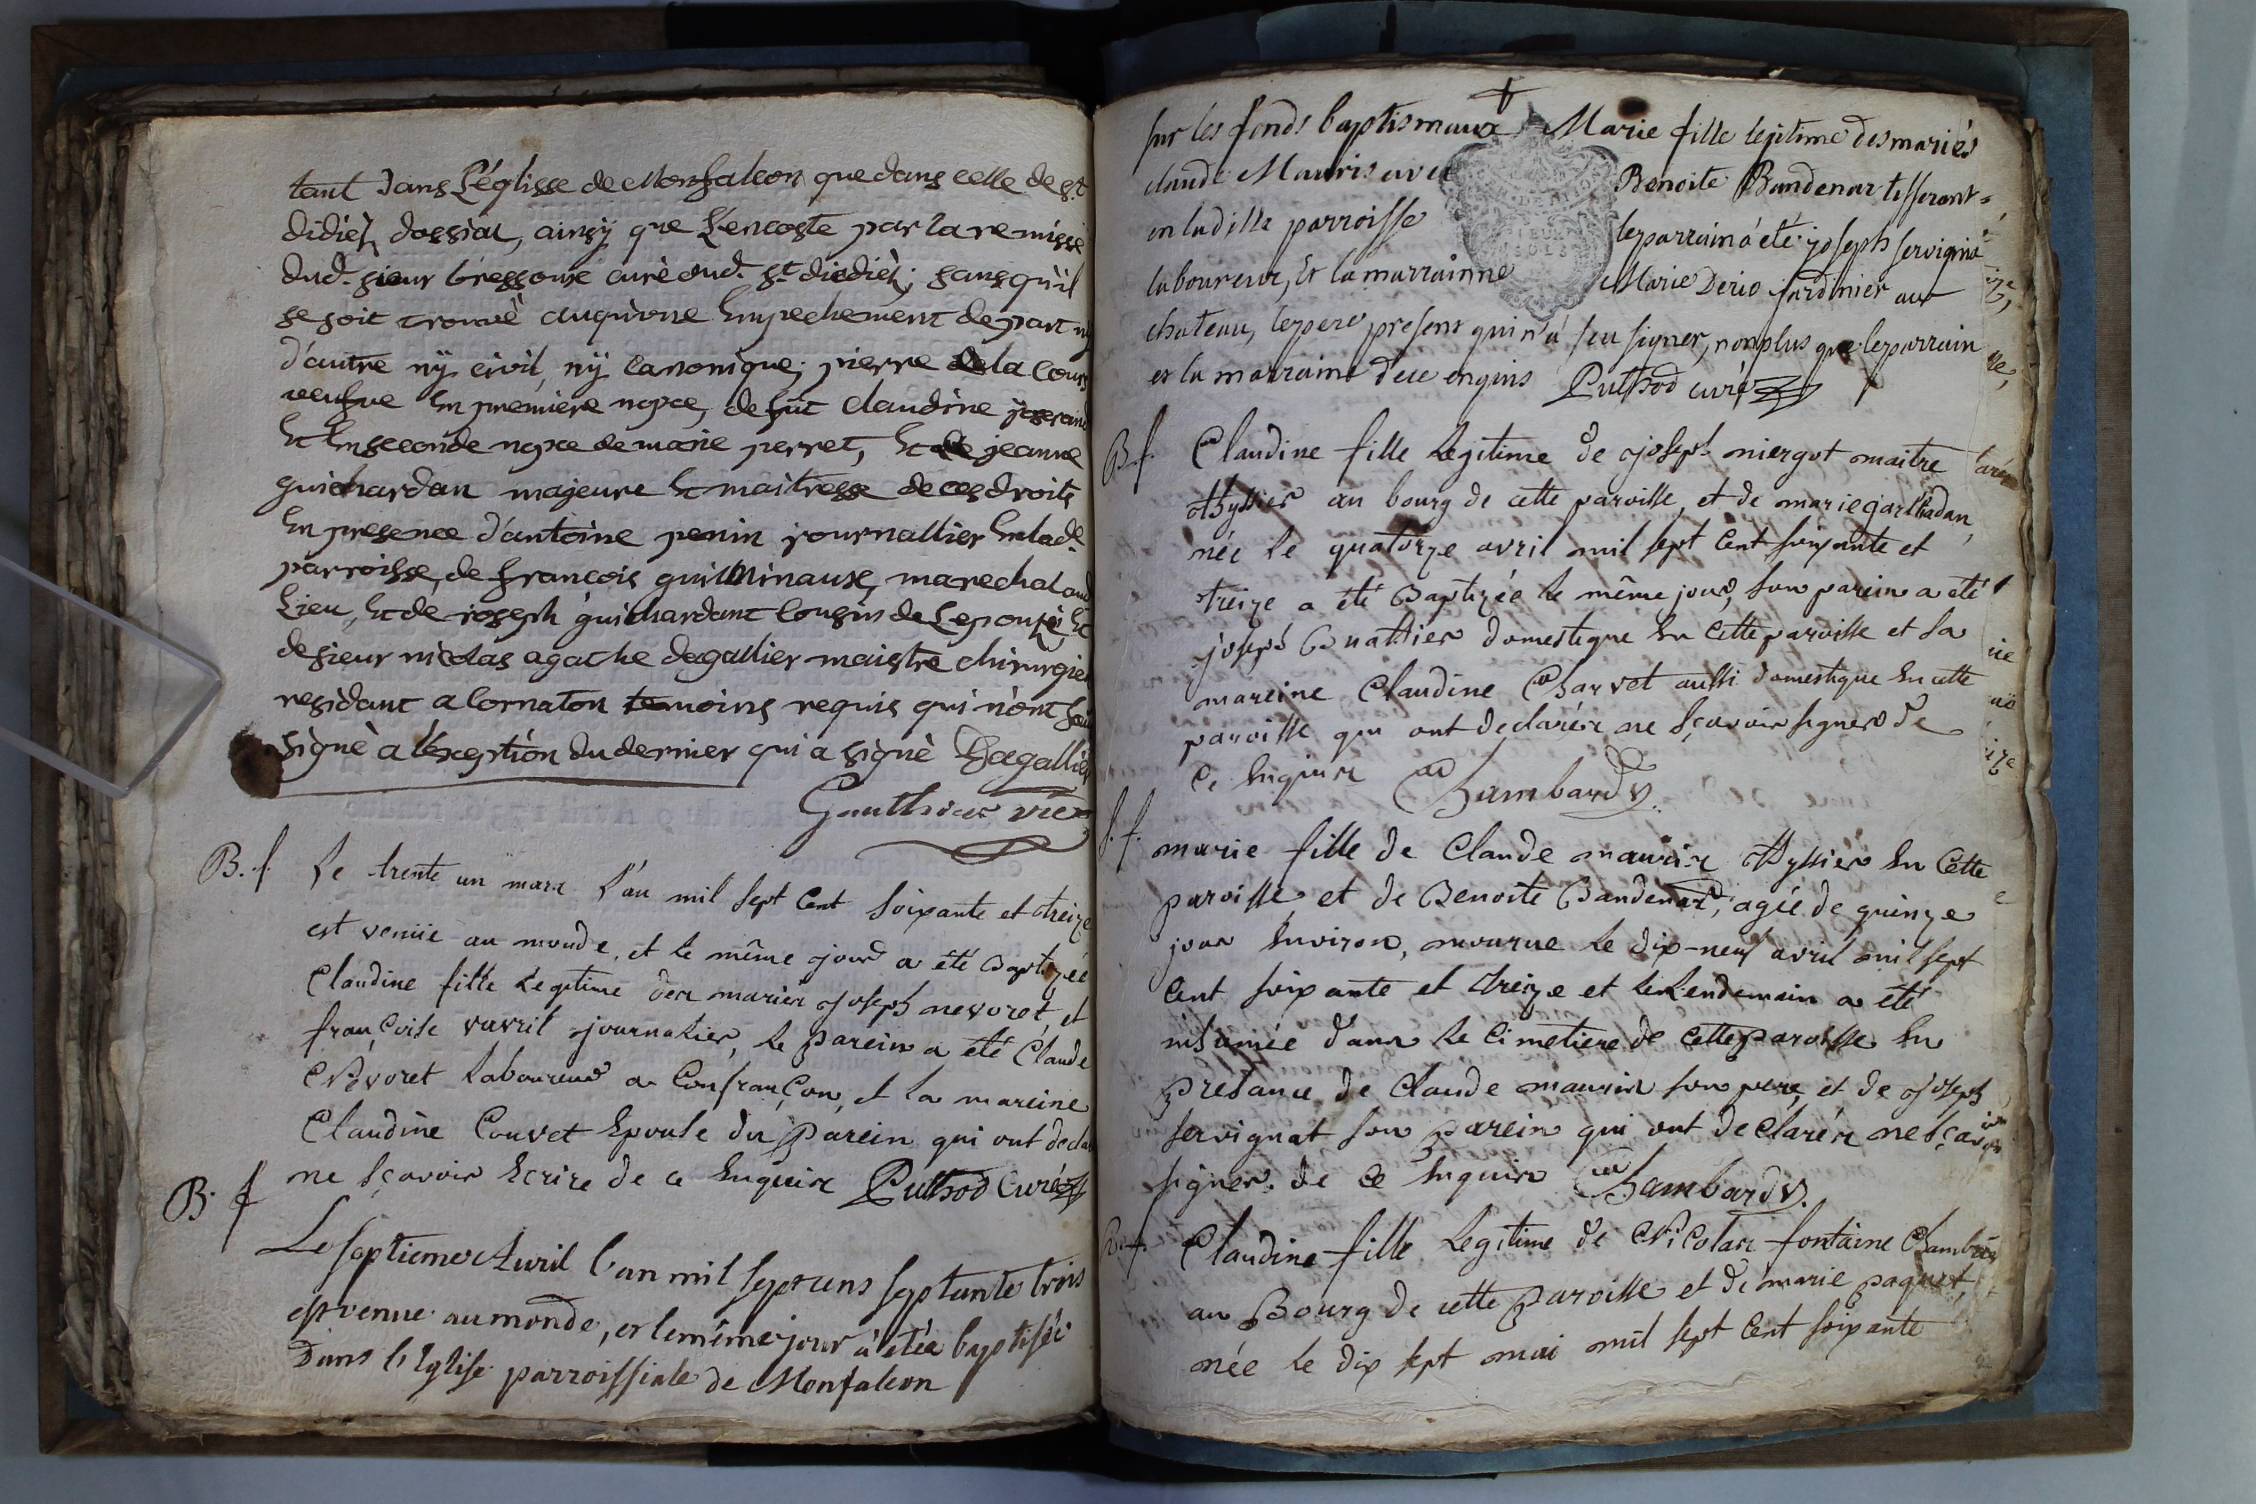 tant dans l'églisse de Monfalcon que dans celle de st
didiér dossiat, ainsÿ que l'encoste par la remisse
dud. sieur bressoux curé dud. st. diediér; sans qu'il
se soit trouvè auqu'une Empechement de part nÿ
d'autre nÿ civil, nÿ canonique; pierre de la Cour
veufve En premiere nopce, de fut claudine joserand
Et En seconde nopce de marie perret, Et de jeanne
guichardan majeure Et maitresse de ces droits
En presence d'antoine penin journallier En lade.
parroisse, de françois guilliminaux, marechal aud
Lieu, Et de joseph guichardant Cousin de L'epouse Et
de sieur nicolas agache dagallier maistre chirurgien
residant a Cornaton temoins requis qui n'ont seu
signè a l'exception du dernier qui a signè Dagallier
Gauthier vic
B. f. Le trente un mars l'an mil sept Cent soixante et treize
est venüe au monde, et le même jour a été Baptizée
Claudine fille Legitime des mariés joseph nevoret et
françoise vavril journalier, le parein a été Claude
Nevoret laboureur a Confrançon, et la mareine
Claudine Couvet Epouse du parein qui ont decla
ne sçavoir Ecrire de ce Enquis Puthod Curé
B. f Le septieme Avril l'an mil sept cens septante trois
est venue au monde, et le même jour à étée baptisée
Dans l'Eglise parroissiale de Monfalcon
sur les fonds baptismaux Marie fille legitime des mariés
claude Mauris avec Benoite Bandenar tisserant
en ladille parroisse le parrain a été joseph servignia
laboureur, Et la marrainne Marie Derio jardinier au
chateau, le pere present qui n'a seu signer, non plus que le parrain
et la marraine de ce enquis Puthod curé
B. f. Claudine fille Legitime de joseph niergot maitre
thyssier au bourg de cette paroisse, et de marie garthadan,
née le quatorze avril mil sept Cent soixante et
treize a été Baptizée le même jour, son parein a été
joseph Buathier domestique En Cette paroisse et sa
mareine Claudine Charvet aussi domestique En cette
paroisse qui ont declarés ne sçavoir signer de
Ce Enquis Chambard v.
s. f. marie fille de Claude mauris thyssier En Cette
paroisse et de Benoite Bandenar, agée de quinze
jour Environ, mourue le dix-neuf avril mil sept
Cent soixante et treize et le Lendemain a été
inhumée dans le Cimetiere de Cette paroisse En
presance de Claude mauris son pere, et de joseph
servignat son parein qui ont declarés ne sçavoir
signer de ce Enquis Chambard v.
B. f. Claudine fille Legitime de Nicolas fontaine
au Bourg de cette paroisse et de marie paquet,
née le dix sept mai mil sept Cent soixante